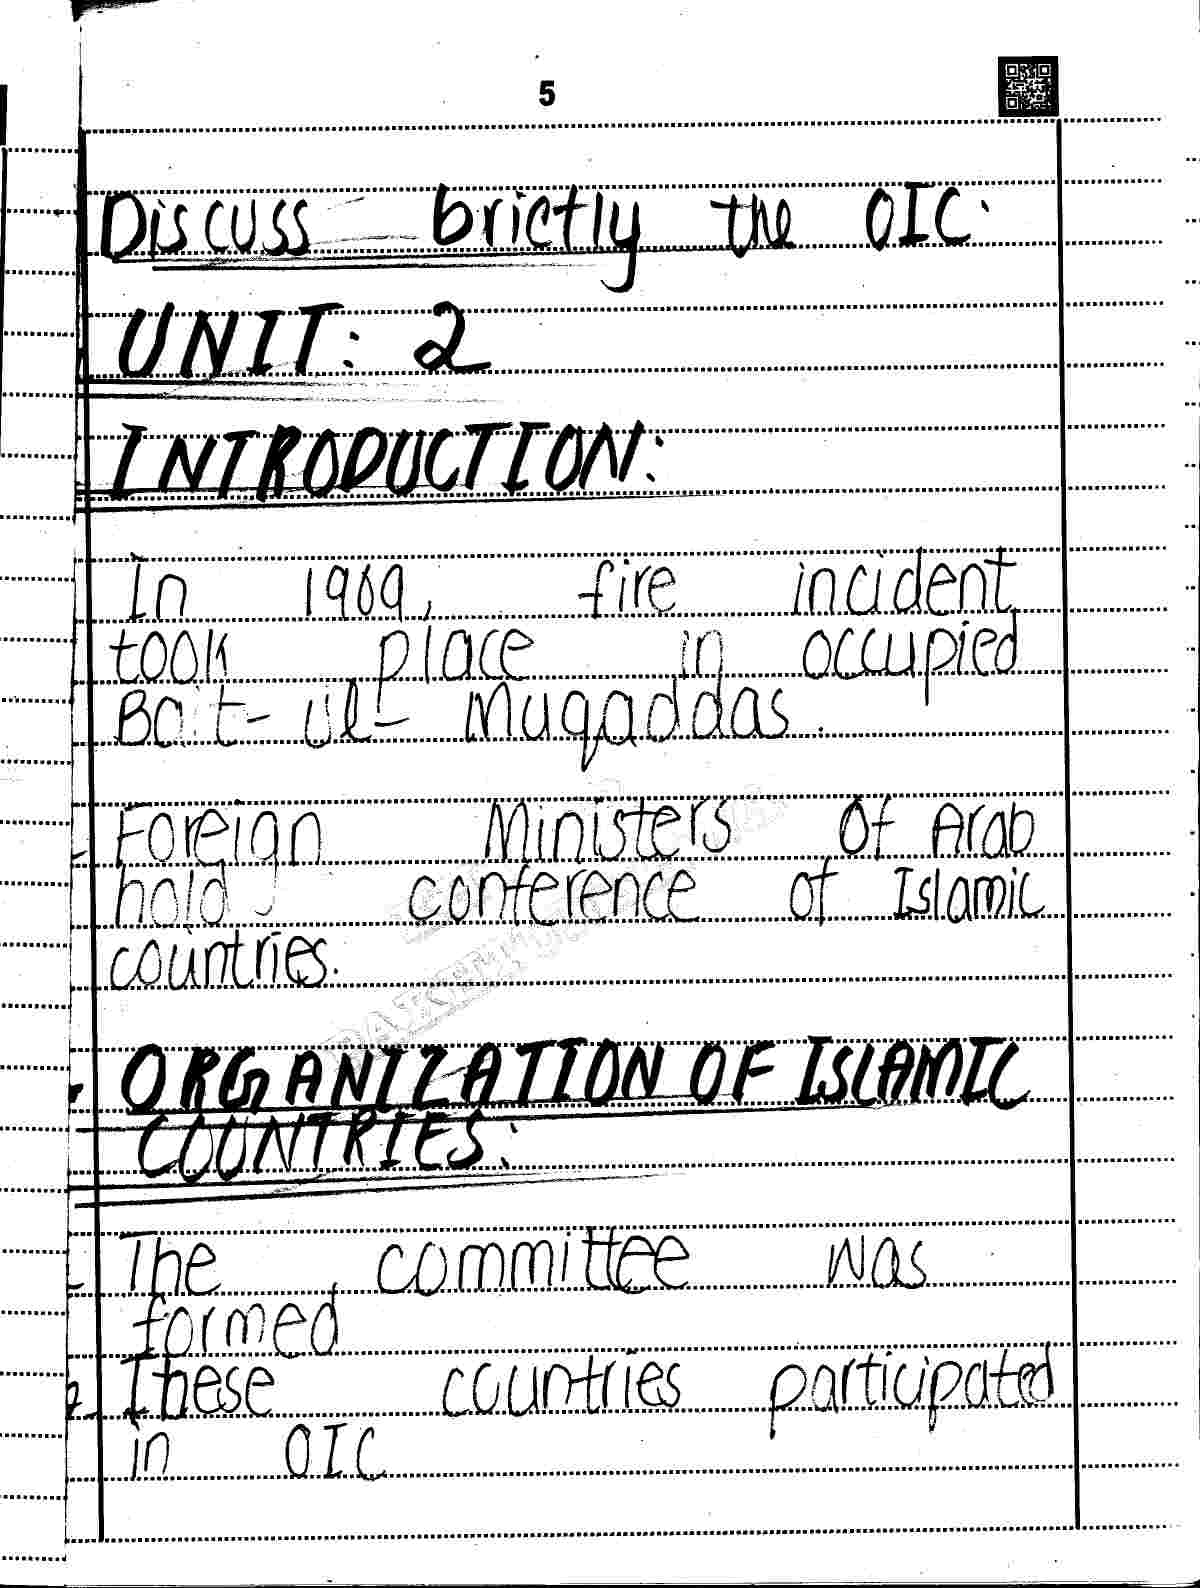 5
Discuss brictly the OIC.
UNIT: 2
INTRODUCTION:
In 1969, fire incident
took place in occupied
Bait-ul-Muqaddas.
- Foreign Ministers Of Arab
hold conference of Islamic
countries.
ORGANIZATION OF ISLAMIC
COUNTRIES:
- The committee was
formed
2- These countries participated
in OIC